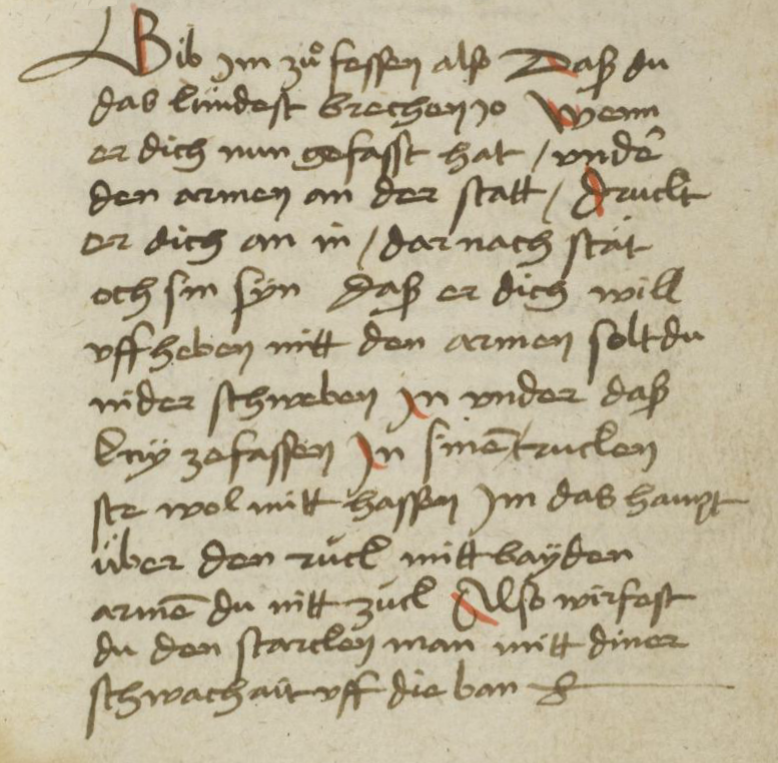 Gib im zuͦ fessen also Daß du
das kündest brechen ɔc Wenn
er dich nun gefasst hat / vnder̄
den armen an der statt / druckt
er dich an in / darnach stät
och sin syn daß er dich will
vffheben mitt den armen solt du
nider schweben In vnder daß
kny zefassen In sinen̄ trucken
ser wol mitt hassen Im das haupt
über den ruck mitt bayden
armē du nitt zuck Also wirfest
du den starcken man mitt diner
schwachait vff die ban